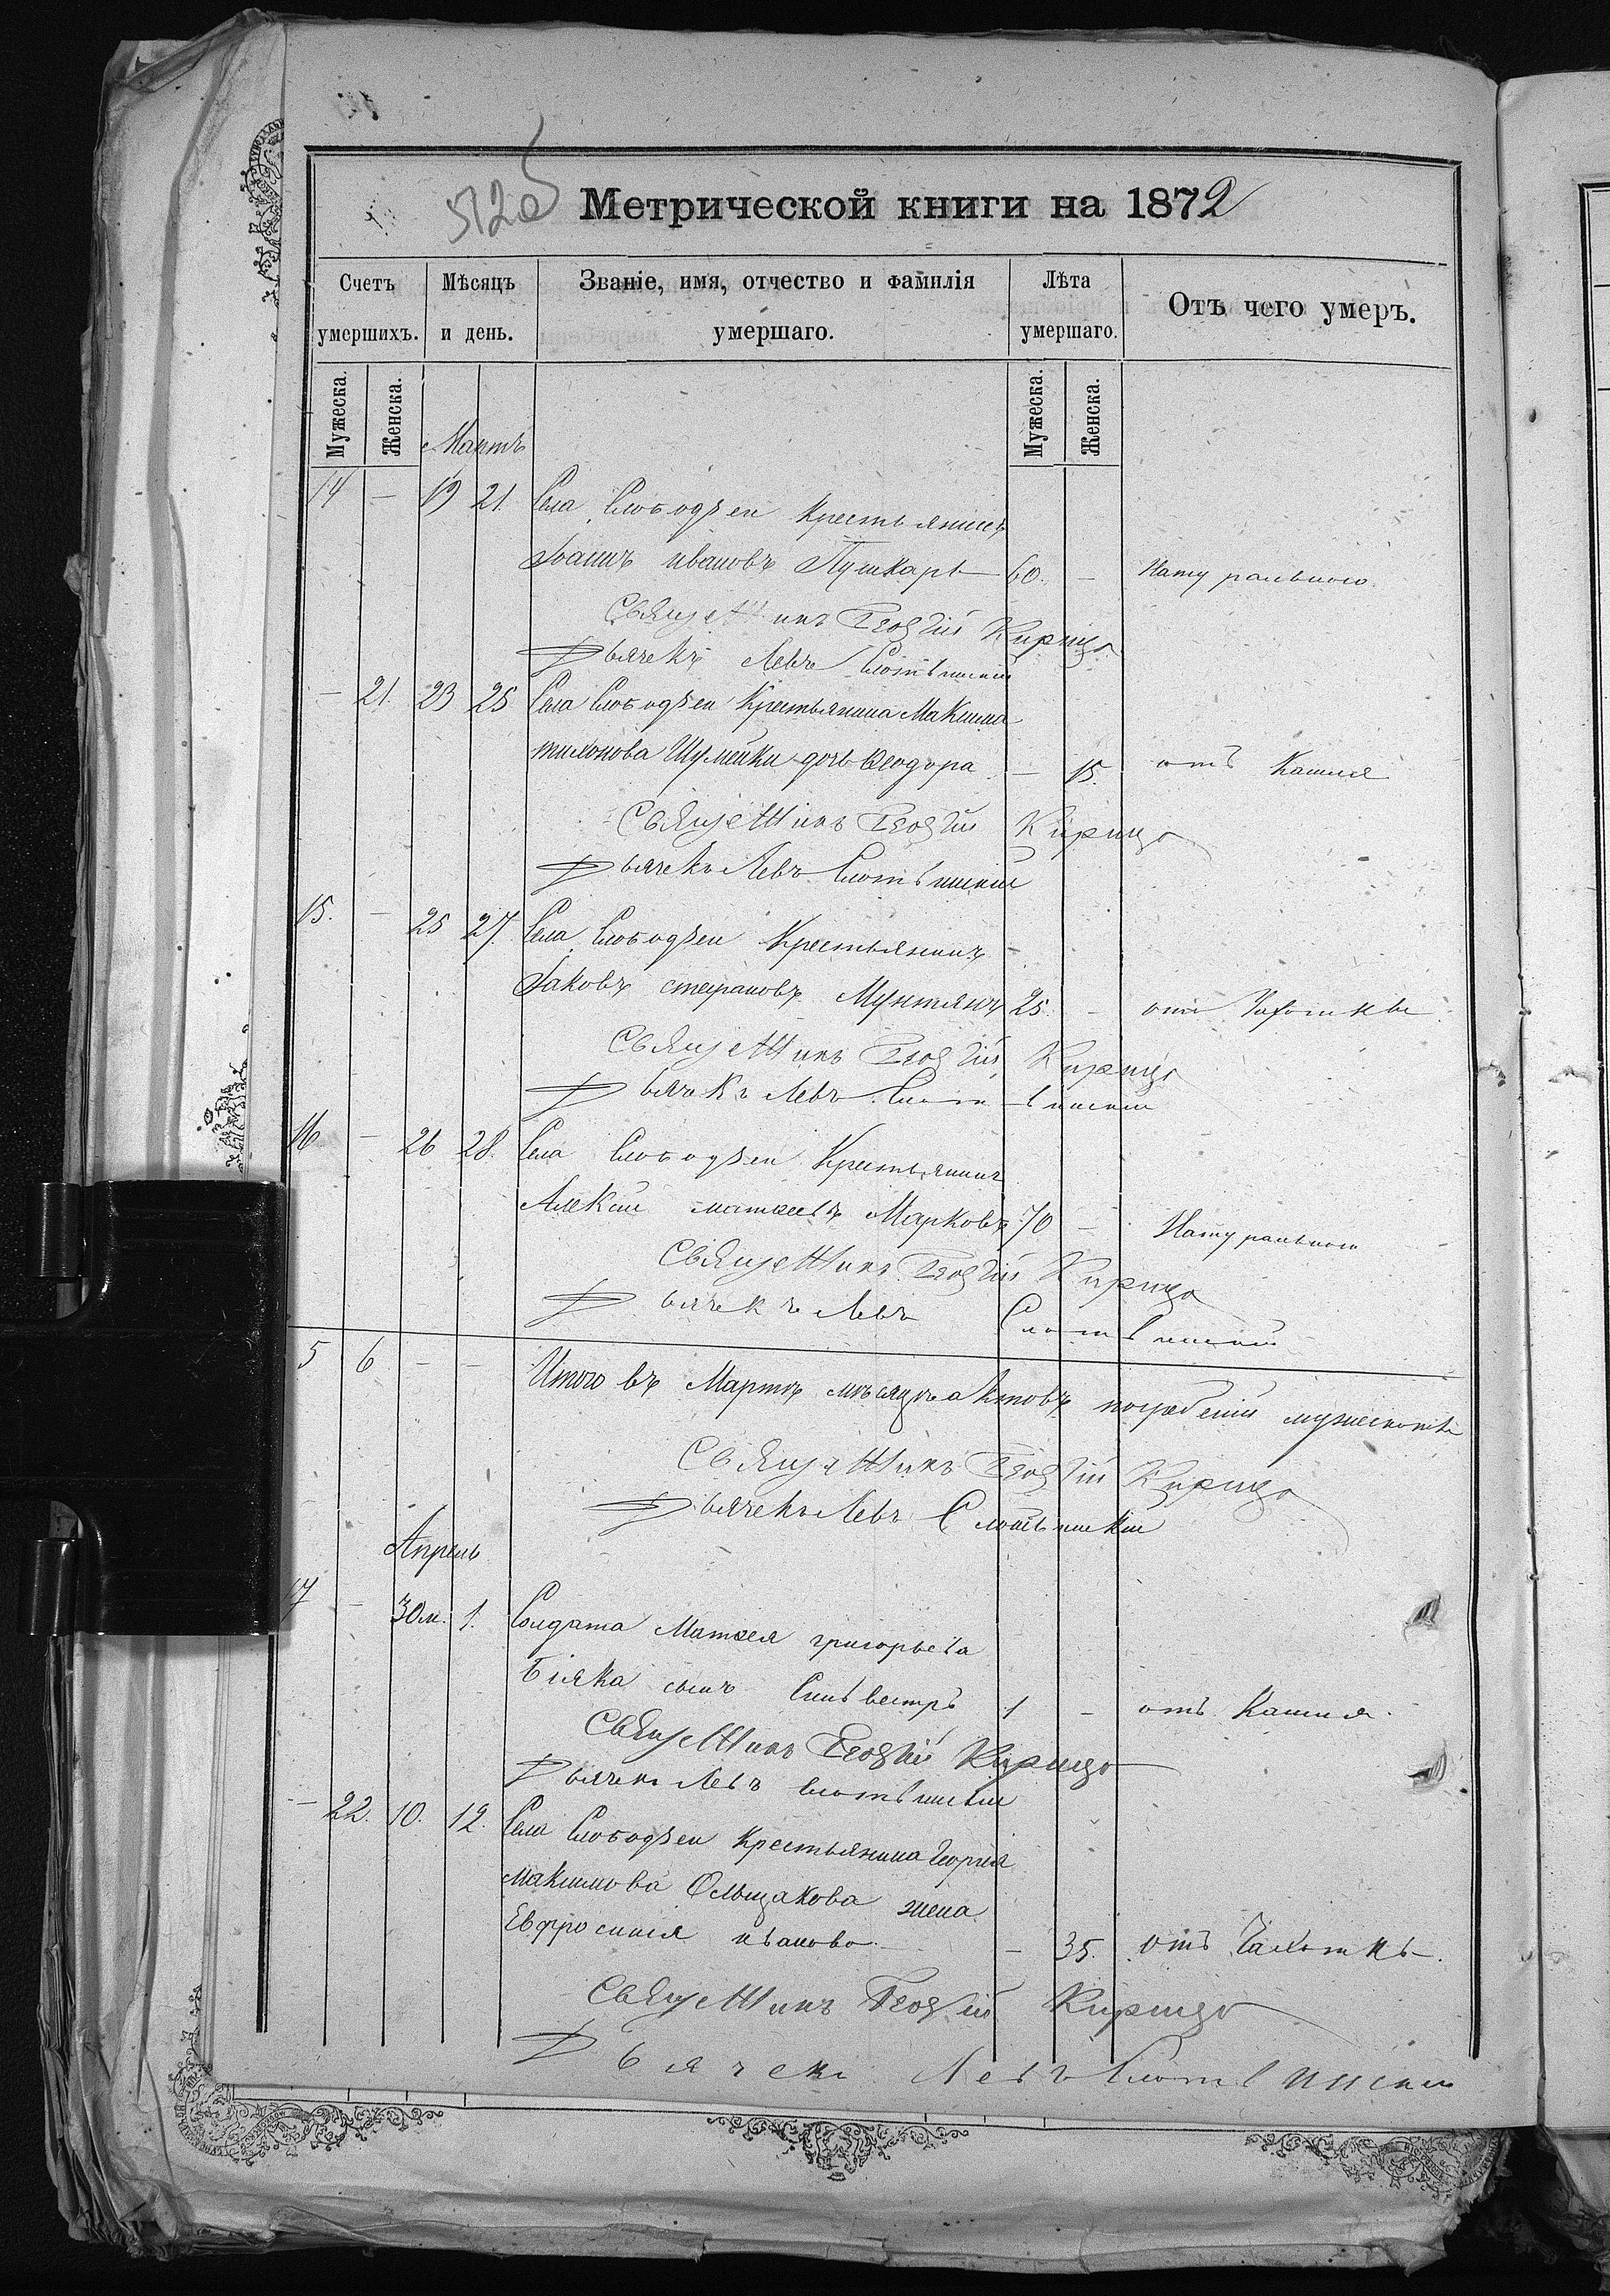 512об
Метрической книги на 1872
Счетъ умершихъ.
Мѣсяцъ и день.
Званіе, имя, отчество и фамилія умершаго.
Лѣта умершаго.
Отъ чего умеръ.
Мужеска.
Женска.
Мужеска.
Женска.
Мартъ
14 — 19 21. Села Слободзеи крестьянинъ
Іоаннъ ивановъ Пушкарь — 60. — Натурального
Священникъ Георгій Кирица
Дьячекъ Левъ Слотвинскій
— 21. 23 25 Села Слободзеи Крестьянина Максима
тихонова Шумейки дочь Ѳеодора — 15. отъ Кашля
Священникъ Георгій Кирица
Дьячекъ Левъ Слотвинскій
15. — 25 27. Села Слободзеи Крестьянинъ
Іаковъ стефановъ Мунтянъ 25. — отъ Чахотки
Священникъ Георгій Кирица
Дьячекъ Левъ Слотвинскій
16 — 26 28. Села Слободзеи Крестьянинъ
Алексій матѳеевъ Марковъ 70 — Натурального
Священникъ Георгій Кирица
Дьячекъ Левъ Слотвинскій
5 6 — — Итого въ Мартѣ мѣсяцѣ актовъ погребеній мужеска
Священникъ Георгій Кирица
Дьячекъ Левъ Слотвинскій
Апрель
17 — 30м. 1. Солдата Матѳея григорьева
Біяка сынъ Сильвестръ 1 — отъ Кашля.
Священникъ Георгій Кирица
Дьячекъ Левъ Слотвинскій
— 22. 10. 12. Села Слободзеи Крестьянина Георгія
Максимова жена
Евфросинія иванова — 35. отъ Чахотки.
Священникъ Георгій Кирица
Дьячекъ Левъ Слотвинскій